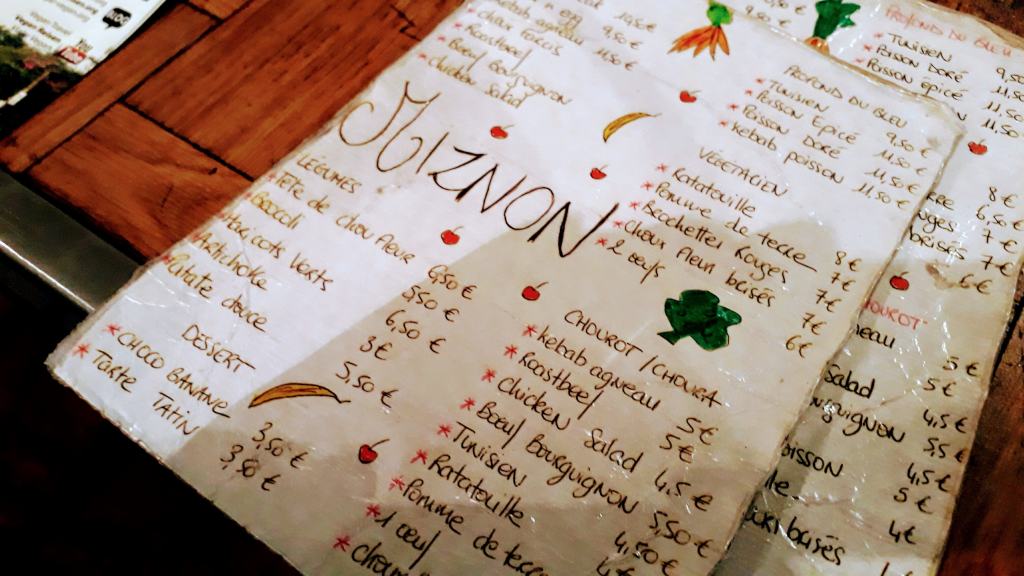 Roastbeef
Boeuf Bourguignon
Chicken Salad
MIZNON
LÉGUMES
TÊTE de chou fleur 6,50 €
Brocoli 5,50 €
Haricots Verts 6,50 €
Artichoke 3 €
Patate douce 5,50 €
DESSERT
* CHOCO BANANE 3,50 €
* Tarte TATIN 3,50 €
PROFOND DU BLEU
* TUNISIEN 9,50 €
* Poisson Epicé 11,50 €
* Poisson DORÉ 11,50 €
* Kebab poisson 11,50 €
VÉGÉTARIEN
* Ratatouille 8 €
* Pomme de terre 7 €
* Brochettes Rouges 7 €
* Choux Fleur baisés 7 €
* 2 oeufs 6 €
CHOUROT / CHOUKA
* Kebab agneau 5 €
* Roastbeef 5 €
* Chicken Salad 4,5 €
* Boeuf Bourguignon 5,50 €
* Tunisien 4,50 €
* Ratatouille
* Pomme de terre
* 1 oeuf
PROFOND DU BLEU
* TUNISIEN 9,50
* Poisson DORÉ 11,50
* Poisson épicé 11,50
11,50
8 €
6,5 €
7 €
baisés 7 €
6 €
5 €
Salad 5 €
4,5 €
5,5 €
4,5 €
5 €
4 €
baisés